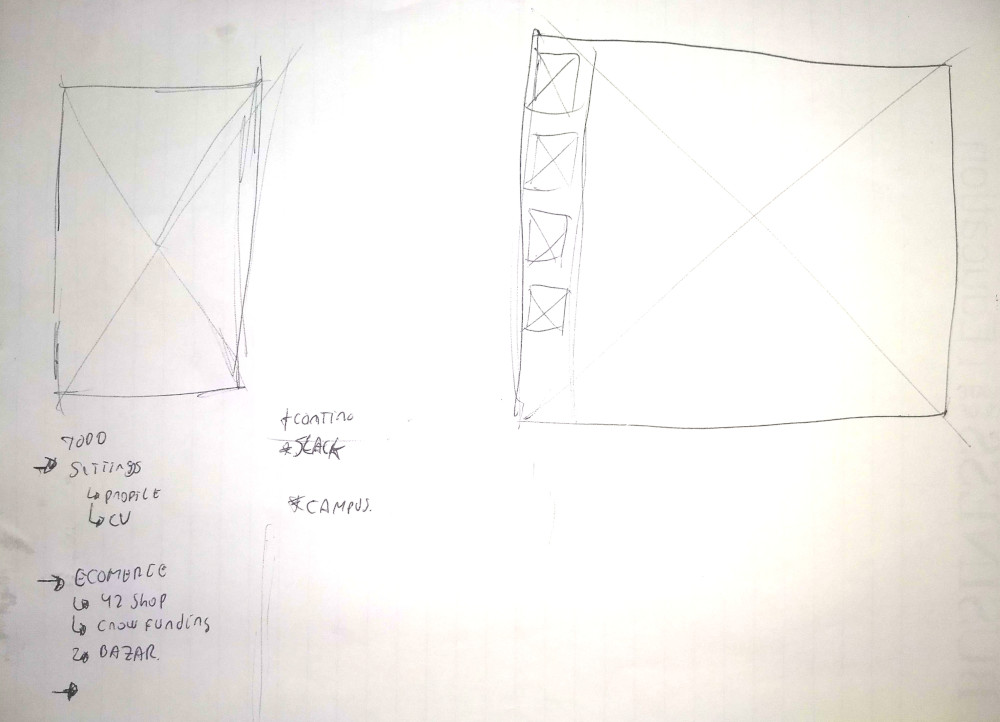 TODO
→ SETTINGS
↳ PROFILE
↳ CU
→ ECOMERCE
↳ 42 Shop
↳ crowfunding
↳ BAZAR.
→
*SLACK
*CAMPUS.